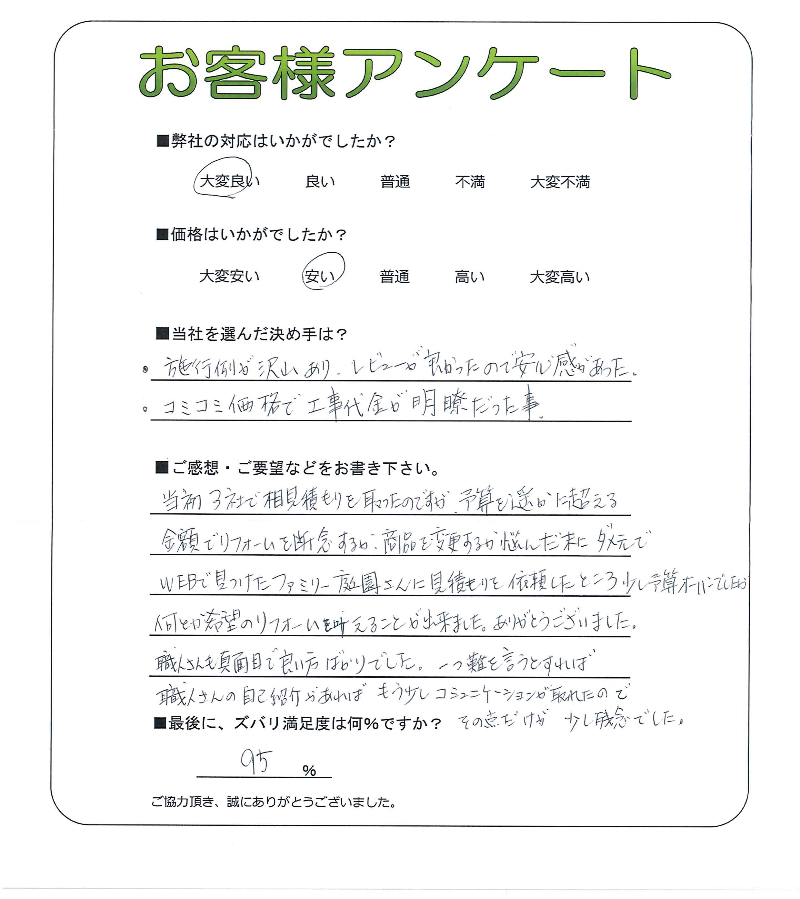 お客様アンケート
■弊社の対応はいかがでしたか？
大変良い 良い 普通 不満 大変不満
■価格はいかがでしたか？
大変安い 安い 普通 高い 大変高い
■当社を選んだ決め手は？
・施行例が沢山あり、レビューが良かったので安心感があった。
・コミコミ価格で工事代金が明瞭だった事。
■ご感想・ご要望などをお書き下さい。
当初3社で相見積もりを取ったのですが、予算を遥かに超える
金額でリフォームを断念するか、商品を変更するか悩んだ末にダメ元で
WEBで見つけたファミリー庭園さんに見積もりを依頼したところ少し予算オーバーでしたが
何とか希望のリフォームを叶えることが出来ました。ありがとうございました。
職人さんも真面目で良い方ばかりでした。一つ難を言うとすれば
職人さんの自己紹介があれば もう少しコミュニケーションが取れたので
その点だけが 少し残念でした。
■最後に、ズバリ満足度は何%ですか？
95 %
ご協力頂き、誠にありがとうございました。